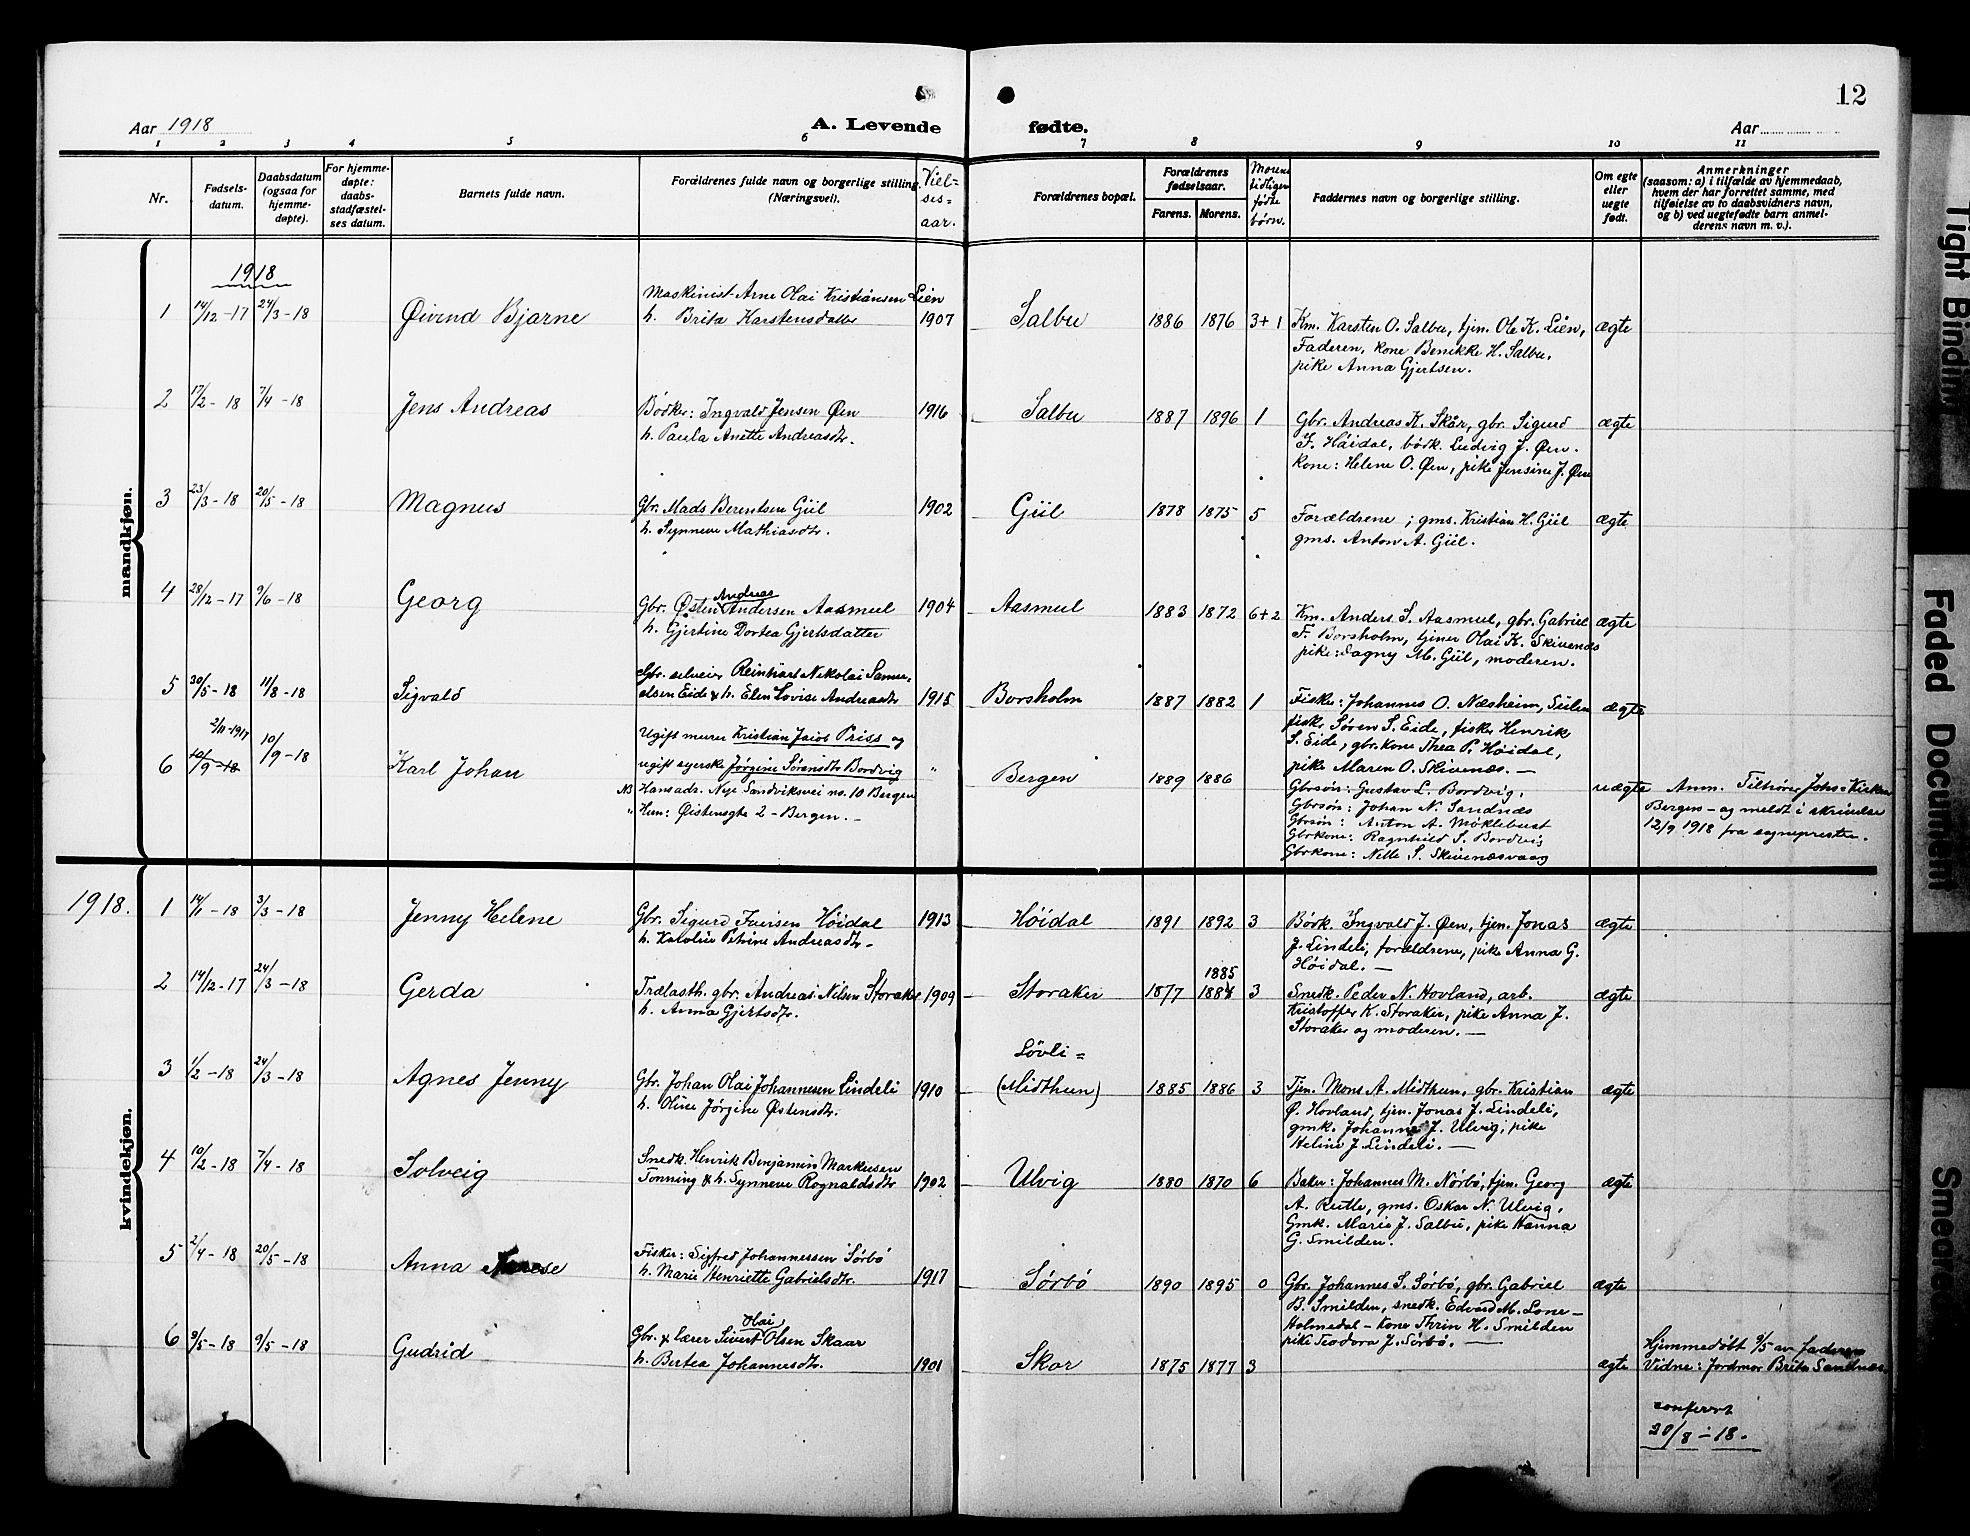 12
Aar 1918
A. Levende fødte.
Aar
1 2 3 4 5 6 7 8 9 10 11
Nr.
Fødsels-
datum.
Daabsdatum
(ogsaa for
hjemme-
døpte).
For hjemme-
døpte:
daabs-
stadfæstel-
ses datum.
Barnets fulde navn.
Forældrenes fulde navn og borgerlige stilling.
(Næringsvei).
Viel-
ses-
aar.
Forældrenes bopæl.
Forældrenes
fødselsaar.
Farens. Morens.
Morens
tidligere
fødte
børn.
Faddernes navn og borgerlige stilling.
Om egte
eller
uegte
født.
Anmerkninger
(saasom: a) i tilfælde av hjemmedaab,
hvem der har forrettet samme, med
tilføielse av to daabsvidners navn,
og b) ved uegtefødte barn anmel-
derens navn m. v.).
mandkjøn.
1918
1 14/12-17 24/3-18 Øivind Bjarne
Maskinist Arne Olai Kristiansen Lien
h. Brita Karstensdatter 1907
Salbu 1886 1876 3+1
Km. Karsten O. Salbu, tjen. Ole K. Lien, ægte
Faderen, kone Benikke H. Salbu,
pike Anna Gjertsen.
2 17/2-18 7/4-18 Jens Andreas
Bødker: Ingvald Jensen Øen 1916
h. Paula Anette Andreasdtr.
Salbu 1887 1896 1
Gbr. Andreas K. Skår, gbr. Sigurd ægte
F. Høidal, bødk. Ludvig J. Øen.
Kone: Helene O. Øen, pike Jensine J. Øen
3 23/3-18 20/5-18 Magnus
Gbr. Mads Berentsen Giil 1902
h. Synneve Mathiasdtr.
Giil 1878 1875 5
Forældrene; gms. Kristian H. Giil ægte
gms. Anton A. Giil.
4 28/12-17 9/6-18 Georg
Andreas
Gbr. Østen Andersen Aasmul 1904
h. Gjertine Dortea Gjertsdatter
Aasmul 1883 1872 6+2
Km. Anders S. Aasmul, gbr. Gabriel ægte
F. Borsholm, tjener Olai K. Skivenes
pike: Dagny M. Giil, moderen.
5 30/5-18 11/8-18 Sigvald
Gbr. selveier Reinhart Nikolai Samu-
elsen Eide & h. Elen Lovise Andreasdtr 1915
Borsholm 1887 1882 1
Fisker: Johannes O. Næsheim, Seilen ægte
fisker Søren S. Eide, fisker Henrik
S. Eide, gbr.kone Thea P. Høidal,
pike Maren O. Skivenæs. —
6 2/11-1917 10/9-18 10/9-18 Karl Johan
Ugift murer Kristian Jacob Priss og
ugift syerske Jørgine Sørensdtr Bordvig "
NB Hans adr. Nye Sandviksvei no. 10 Bergen
" Hun: Øistensgte 2 - Bergen. —
Bergen 1889 1886
Gbrsøn: Gustav L. Bordvig, uægte
Gbrsøn: Johan N. Sandnæs
Gbrsøn: Anton A. Møklebust
Gbrkone: Ragnhild S. Bordvig
Gbrkone: Nelle S. Skivenæsvaag
Anm. Tilhører Johs=Kirken
Bergen - og meldt i skrivelse
12/9 1918 fra sognepresten.
kvindekjøn.
1918.
1 14/1-18 3/3-18 Jenny Helene
Gbr. Sigurd Iversen Høidal 1913
h. Karoline Petrine Andreasdtr-
Høidal 1891 1892 3
Bødk. Ingvald J. Øen, tjen. Jonas ægte
J. Lindeli, forældrene, pike Anna G.
Høidal. —
2 14/12-17 24/3-18 Gerda
Trælasth. gbr. Andreas Nilsen Storaker 1909
h. Anna Gjertsdtr.
Storaker 1877 1885 1884 3
Snedk. Peder N. Hovland, arb. ægte
Kristoffer K. Storaker, pike Anna J.
Storaker og moderen. —
3 1/2-18 24/3-18 Agnes Jenny
Gbr. Johan Olai Johannesen Lindeli 1910
h. Oline Jørgine Østensdtr.
Løvli=
(Midthun) 1885 1886 3
Tjen. Mons A. Midthun, gbr. Kristian ægte
Ø. Hovland, tjen. Jonas J. Lindeli,
gmk. Johanne J. Ulvig, pike
Heline J. Lindeli. —
4 10/2-18 7/4-18 Solveig
Snedk. Henrik Benjamin Markusen
Tonning & h. Synneve Rognaldsdtr 1902
Ulvig 1880 1870 6
Baker: Johannes M. Nørbø, tjen. Georg ægte
A. Rutle, gms. Oskar N. Ulvig,
Gmk. Marie J. Salbu, pike Hanna
G. Smilden.
5 2/4-18 20/5-18 Anna
Fisker: Sigfred Johannessen Sørbø
h. Marie Henriette Gabrielsdtr. 1917
Sørbø 1890 1895 0
Gbr. Johannes S. Sørbø, gbr. Gabriel ægte
B. Smilden, snedk. Edvard M. Lone-
Holmedal - Kone Thrin H. Smilden
pike Teodora J. Sørbø. —
6 9/5-18 9/5-18 Gudrid
Olai
Gbr. & lærer Sivert Olsen Skaar
h. Bertea Johannesdtr. 1901
Skor 1875 1877 3 ægte
Hjemmedøbt 9/5 av faderen
Vidne: Jordmor Brita Sandnæs.
confert
20/8-18.
Tight Binding
Faded Document
Smeared